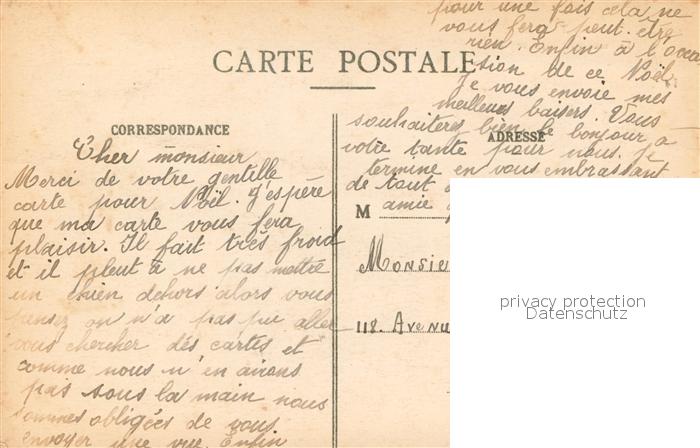 CARTE POSTALE
CORRESPONDANCE
Cher monsieur
Merci de votre gentille
carte pour Noël. J'espère
que ma carte vous fera
plaisir. Il fait très froid
et il pleut à ne pas mettre
un chien dehors alors vous
pensez on n'a pas pu aller
vous chercher des cartes et
comme nous n'en avions
pas sous la main nous
sommes obligées de vous
envoyer une vue. Enfin
pour une fois cela ne
vous fera peut-être
rien. Enfin à l'occa
sion de ce Noël
Je vous envoie mes
meilleurs baisers. Vous
souhaiterez bien le bonjour a
ADRESSE
votre tante pour nous. Je
termine en vous embrassant
de tout
M amie
Monsie
118. Avenu
privacy protection
Datenschutz